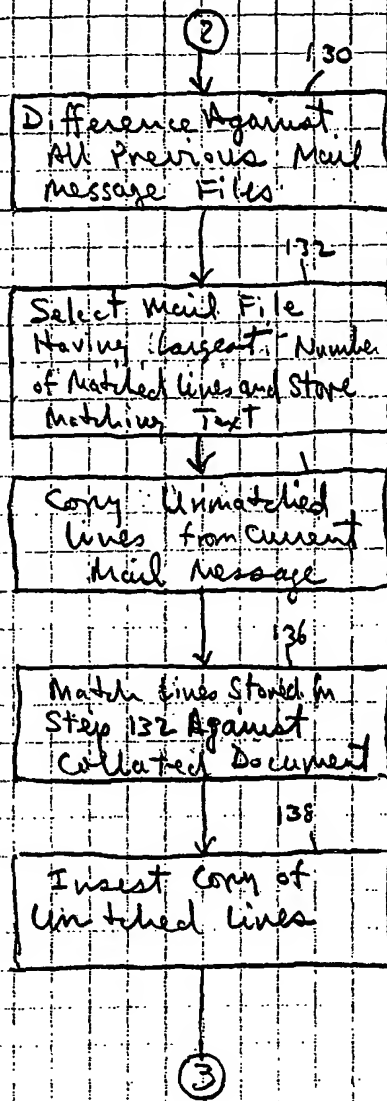 2
130
Difference Against
All Previous Mail
Message Files
132
Select Mail File
Having Largest Number
of Matched Lines and Store
Matching Text
Copy Unmatched
Lines from Current
Mail Message
136
Match Lines Stored In
Step 132 Against
Collated Document
138
Insert Copy of
Un tched Lines
3